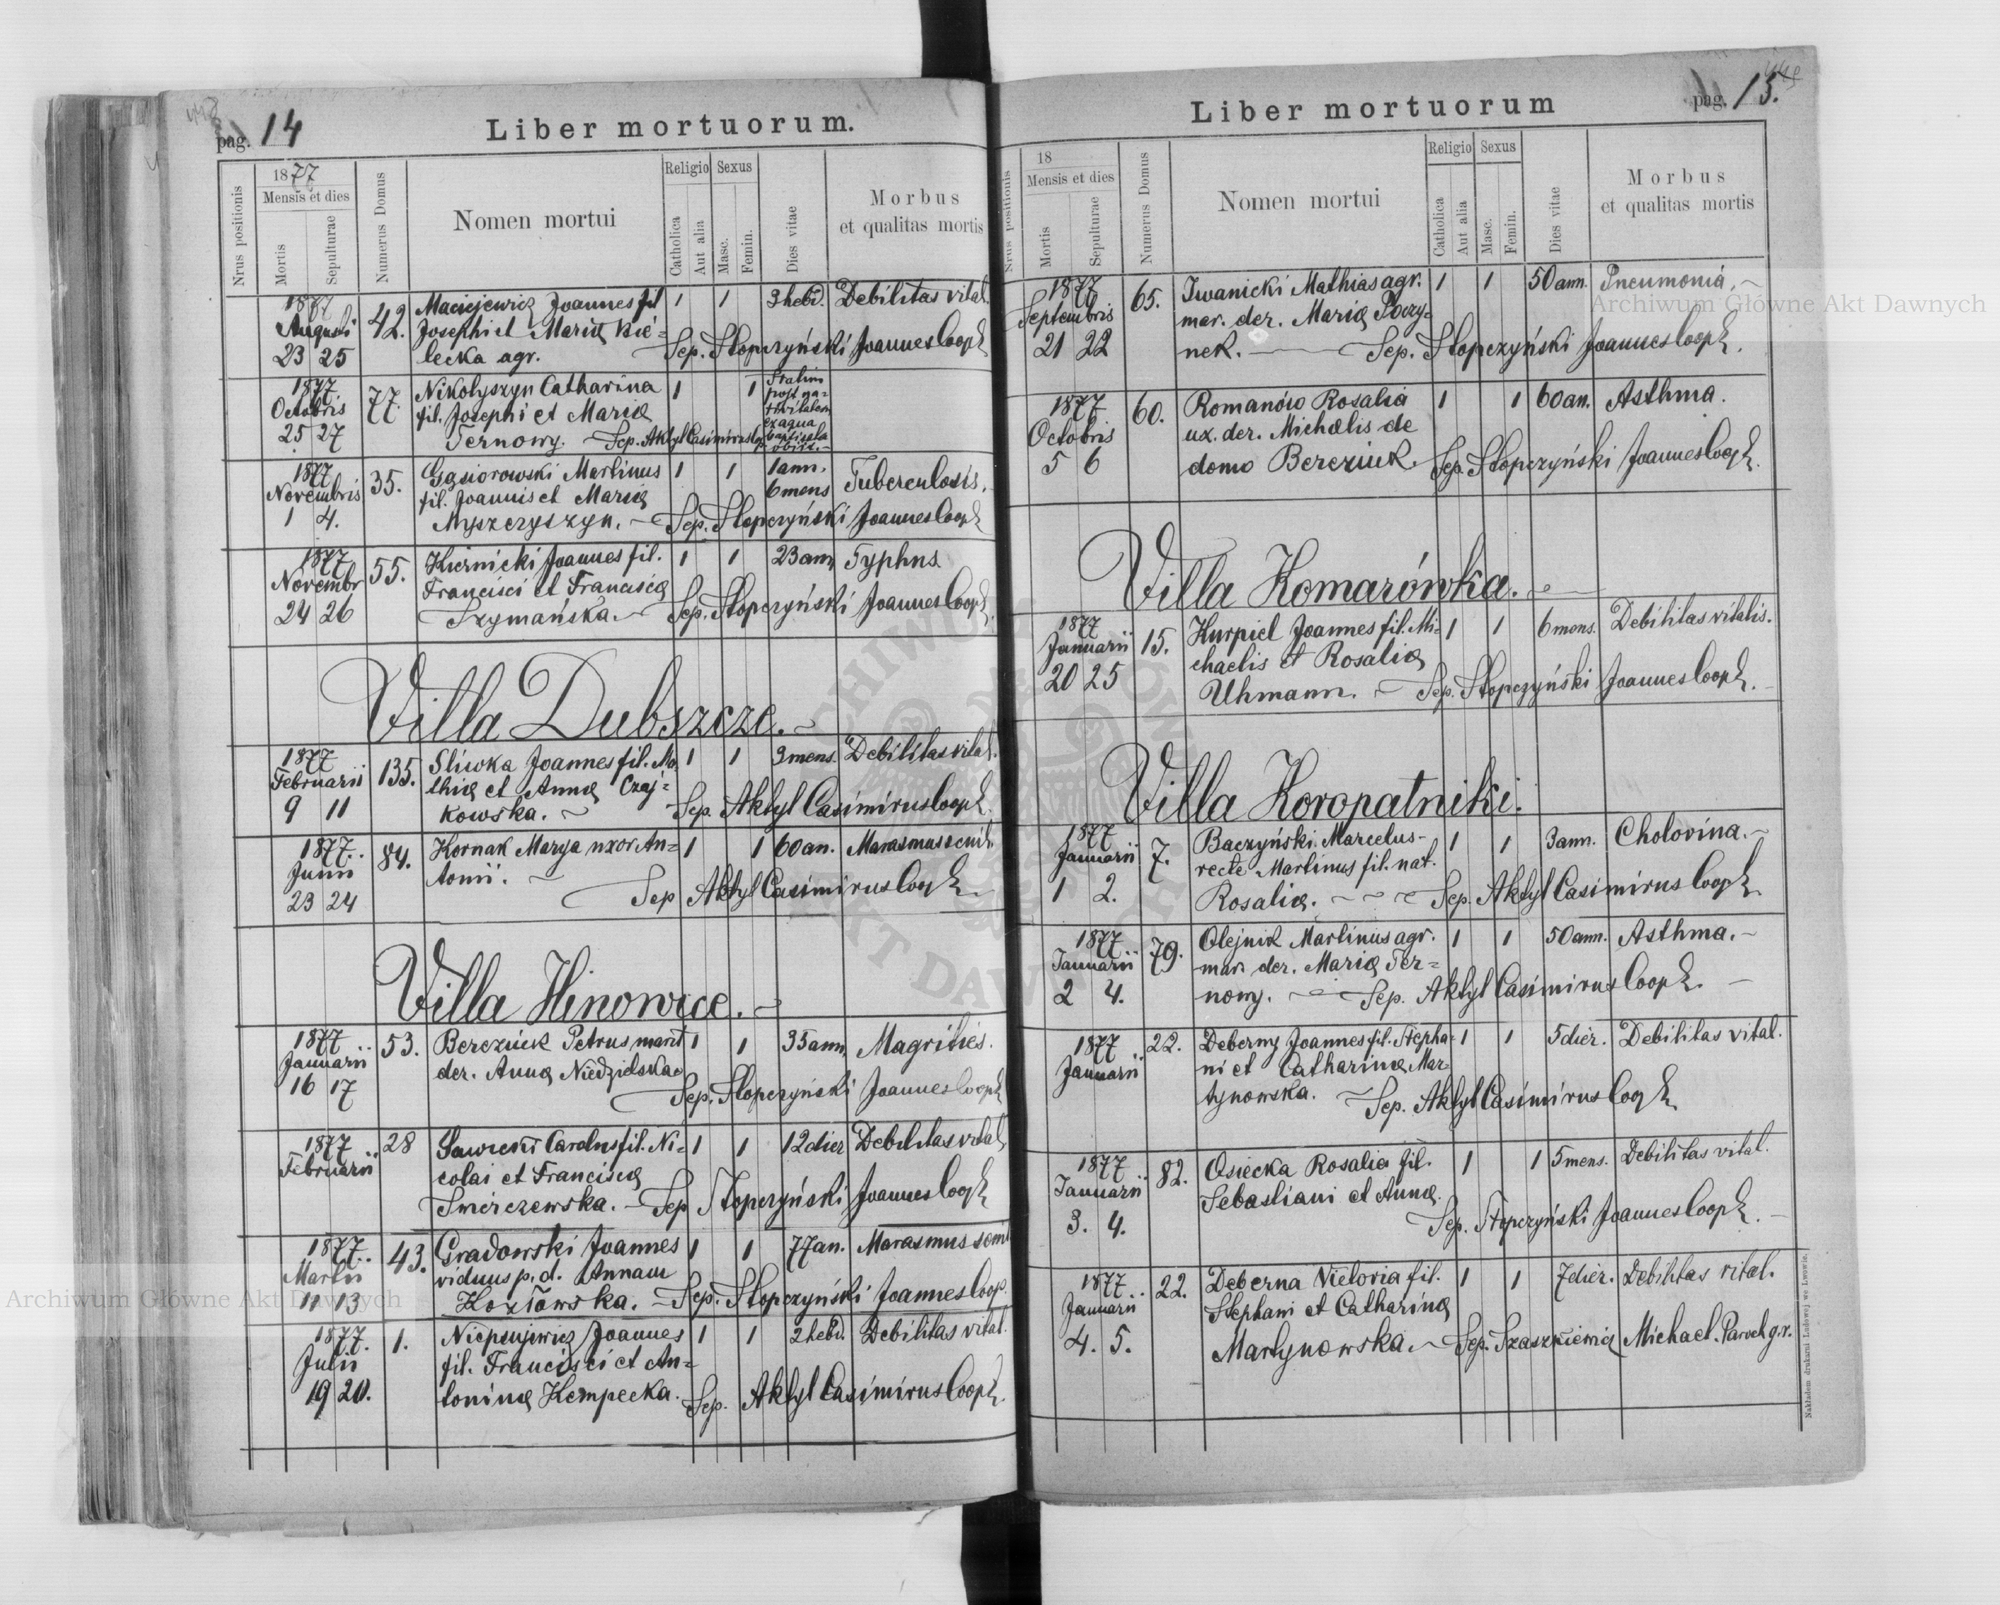 pag. 14
Liber mortuorum.
Nrus positionis
1877
Mensis et dies
Mortis
Sepulturae
Numerus Domus
Nomen mortui
Religio
Catholica
Aut alia
Sexus
Masc.
Femin.
Dies vitae
Morbus
et qualitas mortis
1877 Augusti 23 25
42.
Maciejewicz Joannes fil
Josephi et Mariæ Kie=
lecka agr.
1 1 3 hebd. Debilitas vital.
Sep. Słopczyński Joannes Coop
1877 Octobris 25 27
77.
Nikołyszyn Catharina
fil. Josephi et Mariæ
Ternowy. Sep. Aktyl Casimirus
1 1
Statim
post na=
tivitatem
ex aqua
baptisata
obiit.
1877 Novembris 1 4.
35.
Gąsiorowski Martinus
fil. Joannis et Mariæ
Myszczyszyn.
1 1 1 ann. 6 mens Tuberculosis.
Sep. Słopczyński Joannes Coop
1877 Novembr 24 26
55.
Kiernicki Joannes fil.
Francisci et Franciscæ
Szymańska.
1 1 23 ann Typhus
Sep. Słopczyński Joannes Coop
Villa Dubszcze.
1877 Februarii 9 11
135.
Sliwka Joannes fil. Ma
thiæ et Annæ Czaj=
kowska.
1 1 3 mens. Debilitas vital.
Sep. Aktyl Casimirus Coop
1877. Junii 23 24
84.
Kornak Marya uxor An=
tonii.
1 1 60 an. Marasmus senil.
Sep Aktyl Casimirus Coop
Villa Hinowice.
1877 Januarii 16 17
53.
Bereziuk Petrus marit
der. Annæ Niedzielska
1 1 35 ann. Magrities.
Sep. Słopczyński Joannes Coop
1877 Februarii
28
Sawicki Carolus fil. Ni=
colai et Franciscæ
Smerczewska.
1 1 12 dier Debilitas vital
Sep Słopczyński Joannes Coop
1877. Martii 11 13
43.
Gradowski Joannes
viduus p. d. Annam
Kozłowska.
1 1 77 an. Marasmus senil
Sep. Słopczyński Joannes Coop.
1877. Julii 19 20.
1.
Joannes
fil. Francisci et An=
toninæ Kempecka.
1 1 2 hebd. Debilitas vital.
Sep. Aktyl Casimirus Coop
pag. 15.
Liber mortuorum
Nrus positionis
18
Mensis et dies
Mortis
Sepulturae
Numerus Domus
Nomen mortui
Religio
Catholica
Aut alia
Sexus
Masc.
Femin.
Dies vitae
Morbus
et qualitas mortis
1877 Septembris 21 22
65.
Iwanicki Mathias agr.
mar. der. Mariæ Poczy=
nek.
1 1 50 ann. Pneumonia.
Sep. Słopczyński Joannes Coop
1877 Octobris 5 6
60.
Romanów Rosalia
ux. der. Michælis de
domo Bereziuk.
1 1 60 an. Asthma.
Sep. Słopczyński Joannes Coop
Villa Komarówka.
1877 Januarii 20 25
15.
Kurpiel Joannes fil. Mi=
chaelis et Rosaliæ
Uhmann.
1 1 6 mens. Debilitas vitalis.
Sep. Słopczyński Joannes Coop
Villa Koropatniki.
1877 Januarii 1 2.
7.
Baczyński Marcelus-
recte Martinus fil. nat.
Rosaliæ.
1 1 3 ann. Cholovina.
Sep. Aktyl Casimirus Coop
1877 Januarii 2 4.
79.
Olejnik Martinus agr.
mar. der. Mariæ Ter=
nowy.
1 1 50 ann. Asthma.
Sep. Aktyl Casimirus Coop
1877 Januarii
22.
Deberny Joannes fil. Stepha=
ni et Catharinæ Mar=
tynowska.
1 1 5 dier. Debilitas vital.
Sep. Aktyl Casimirus Coop
1877 Januarii 3. 4.
82.
Osiecka Rosalia fil.
Sebastiani et Annæ.
1 1 5 mens. Debilitas vital.
Sep. Słopczyński Joannes Coop
1877 Januarii 4. 5.
22.
Deberna Victoria fil.
Stephani et Catharinæ
Martynowska.
1 1 7 dier. Debilitas vital.
Sep. Szaszkiewicz Michael. Paroch g. r.
Nakładem drukarni Ludowej we Lwowie.
Archiwum Główne Akt Dawnych
Archiwum Główne Akt Dawnych